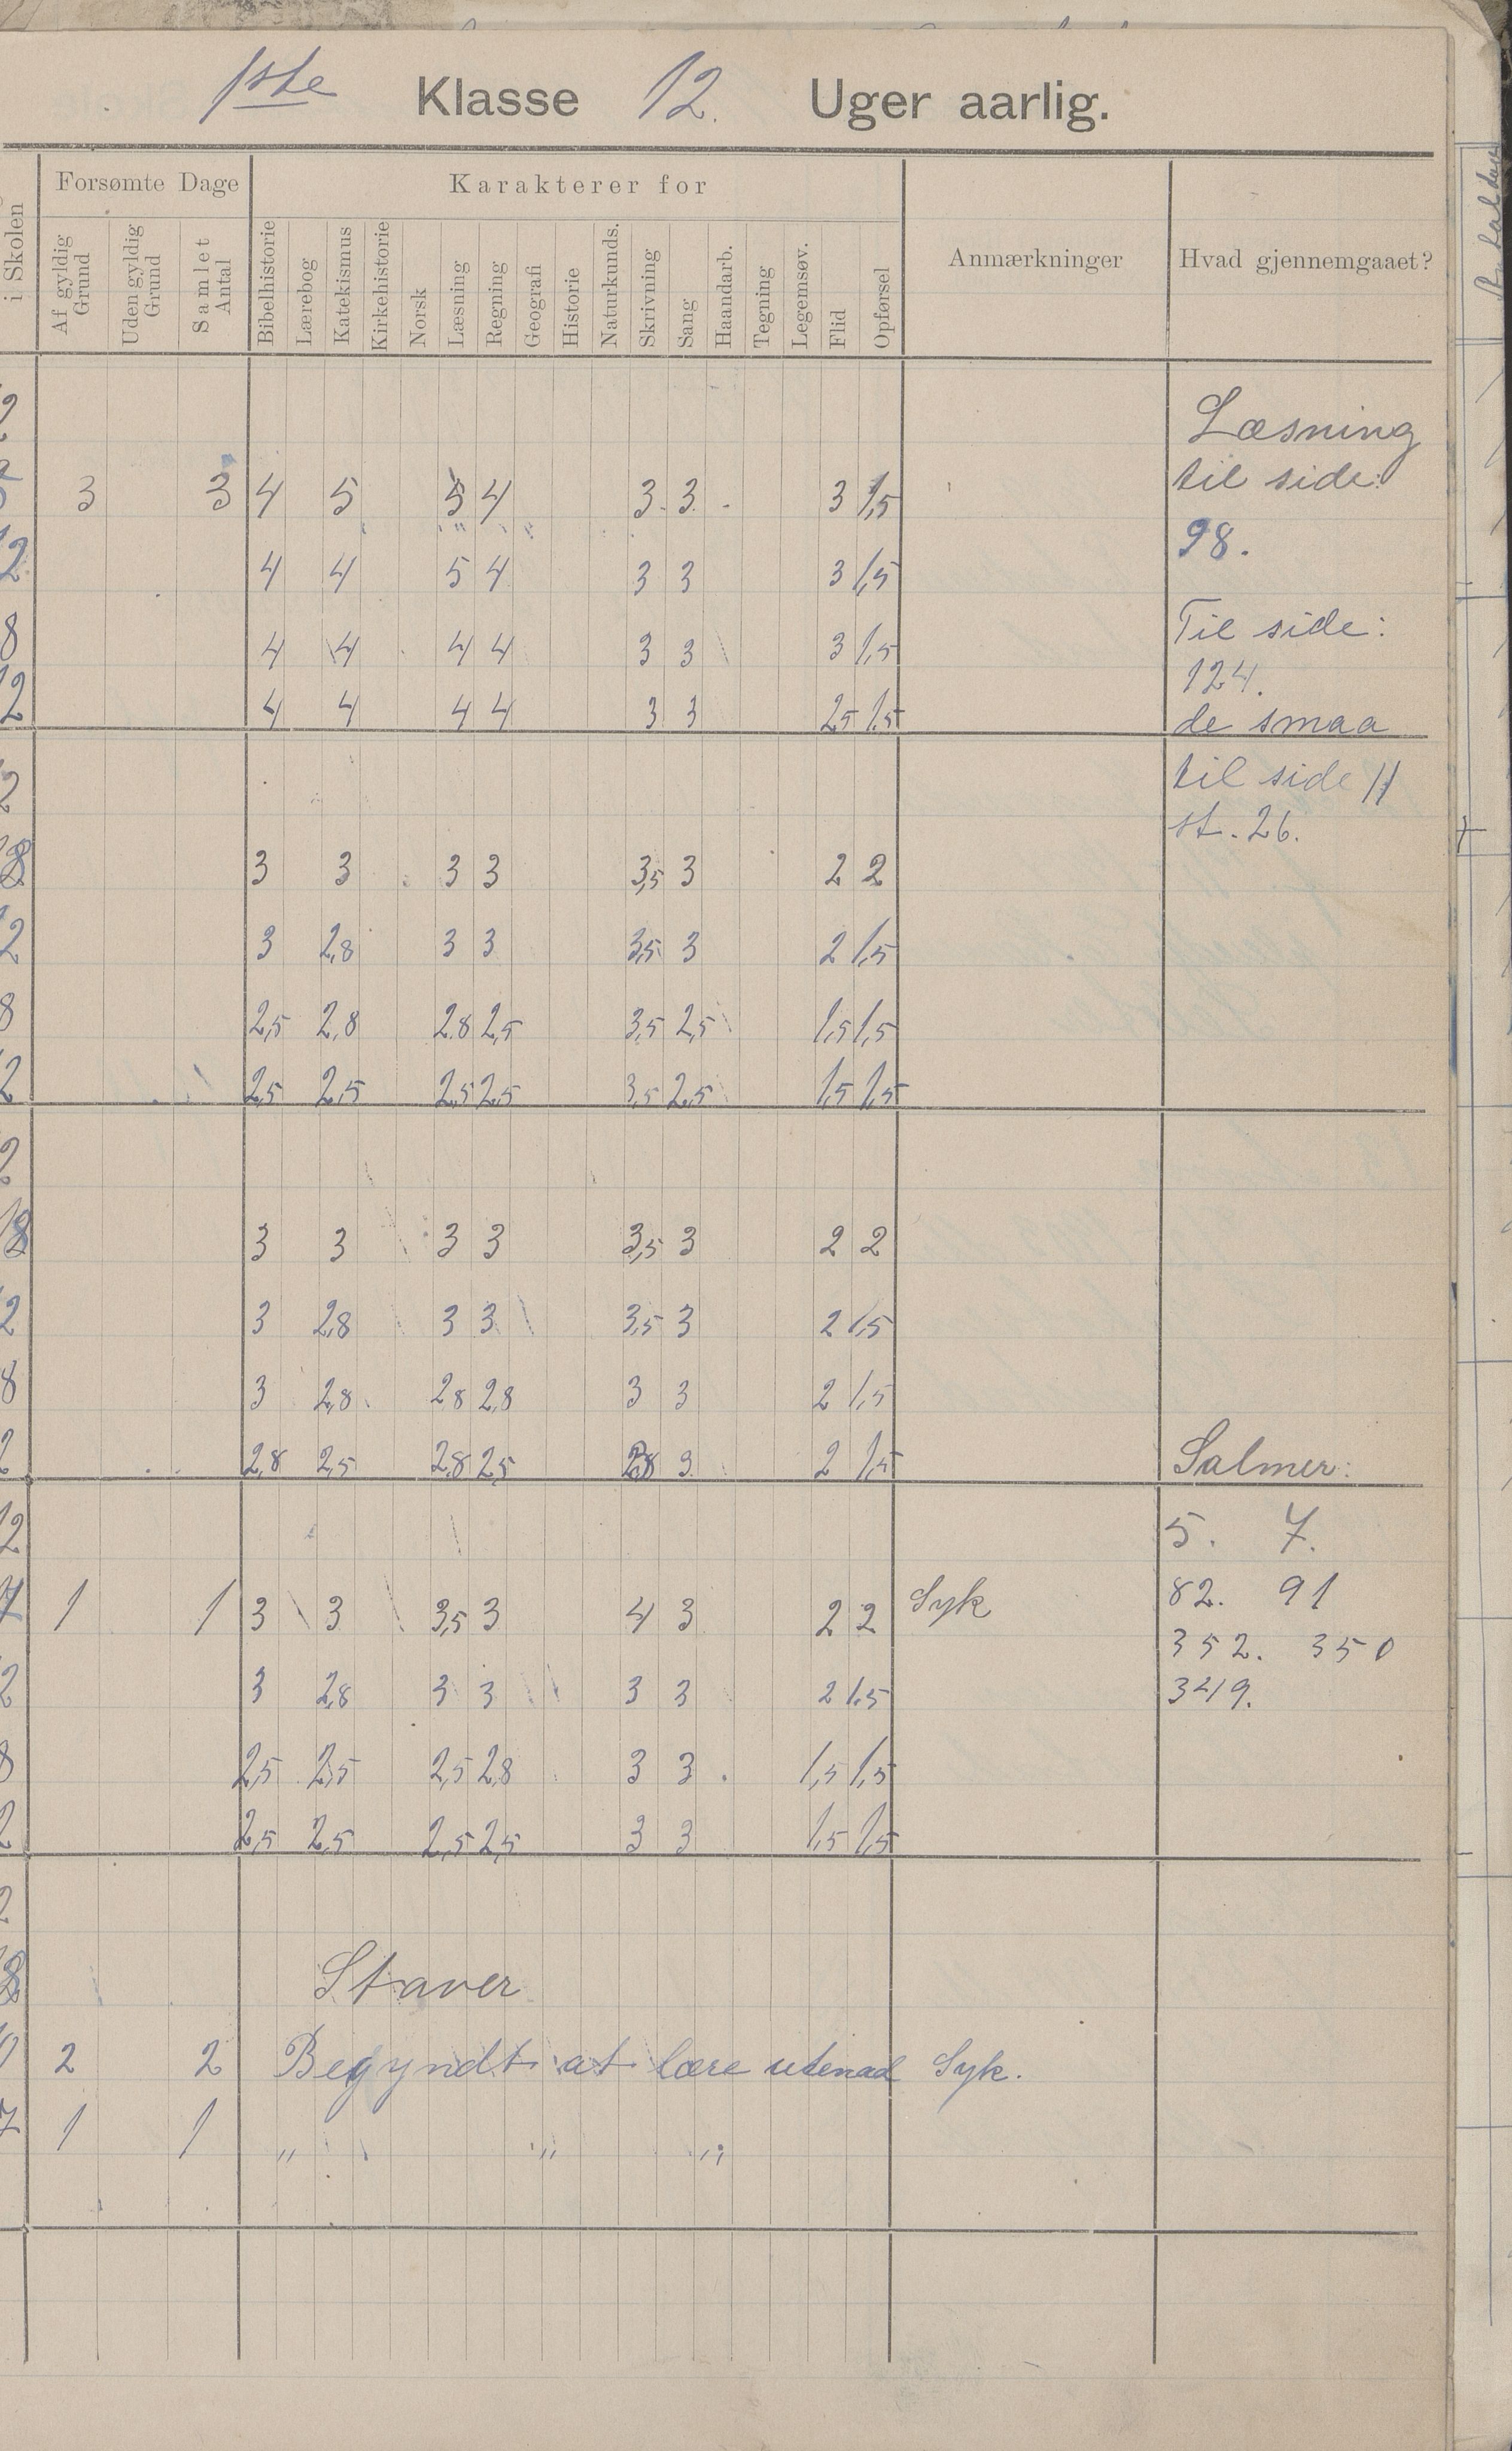 1ste Klasse 12. Uger aarlig.
i Skolen
Forsømte Dage
Karakterer for
Anmærkninger
Hvad gjennemgaaet?
Af gyldig Grund
Uden gyldig Grund
Samlet Antal
Bibelhistorie
Lærebog
Katekismus
Kirkehistorie
Norsk
Læsning
Regning
Geografi
Historie
Naturkunds.
Skrivning
Sang
Haandarb.
Tegning
Legemsøv.
Flid
Opførsel
Læsning
3 3 4 5 5 4 3 3 3 1,5 til side:
98.
4 4 5 4 3 3 3 1,5
4 4 4 4 3 3 3 1,5 Til side:
124.
4 4 4 4 3 3 2,5 1,5 de smaa
til side 11
st. 26.
3 3 3 3 3,5 3 2 2
3 2,8 3 3 3,5 3 2 1,5
2,5 2,8 2,8 2,5 3,5 2,5 1,5 1,5
2,5 2,5 2,5 2,5 3,5 2,5 1,5 1,5
3 3 3 3 3,5 3 2 2
3 2,8 3 3 3,5 3 2 1,5
3 2,8 2,8 2,8 3 3 2 1,5
2,8 2,5 2,8 2,5 2,8 3 2 1,5 Salmer:
5. 7.
1 1 3 3 3,5 3 4 3 2 2 Syk 82. 91
352. 350
3 2,8 3 3 3 3 2 1.5 349.
2,5 2,5 2,5 2,8 3 3 1,5 1,5
2,5 2,5 2,5 2,5 3 3 1,5 1,5
Staver
2 2 Begyndt at lære utenad Syk.
1 1 " " "